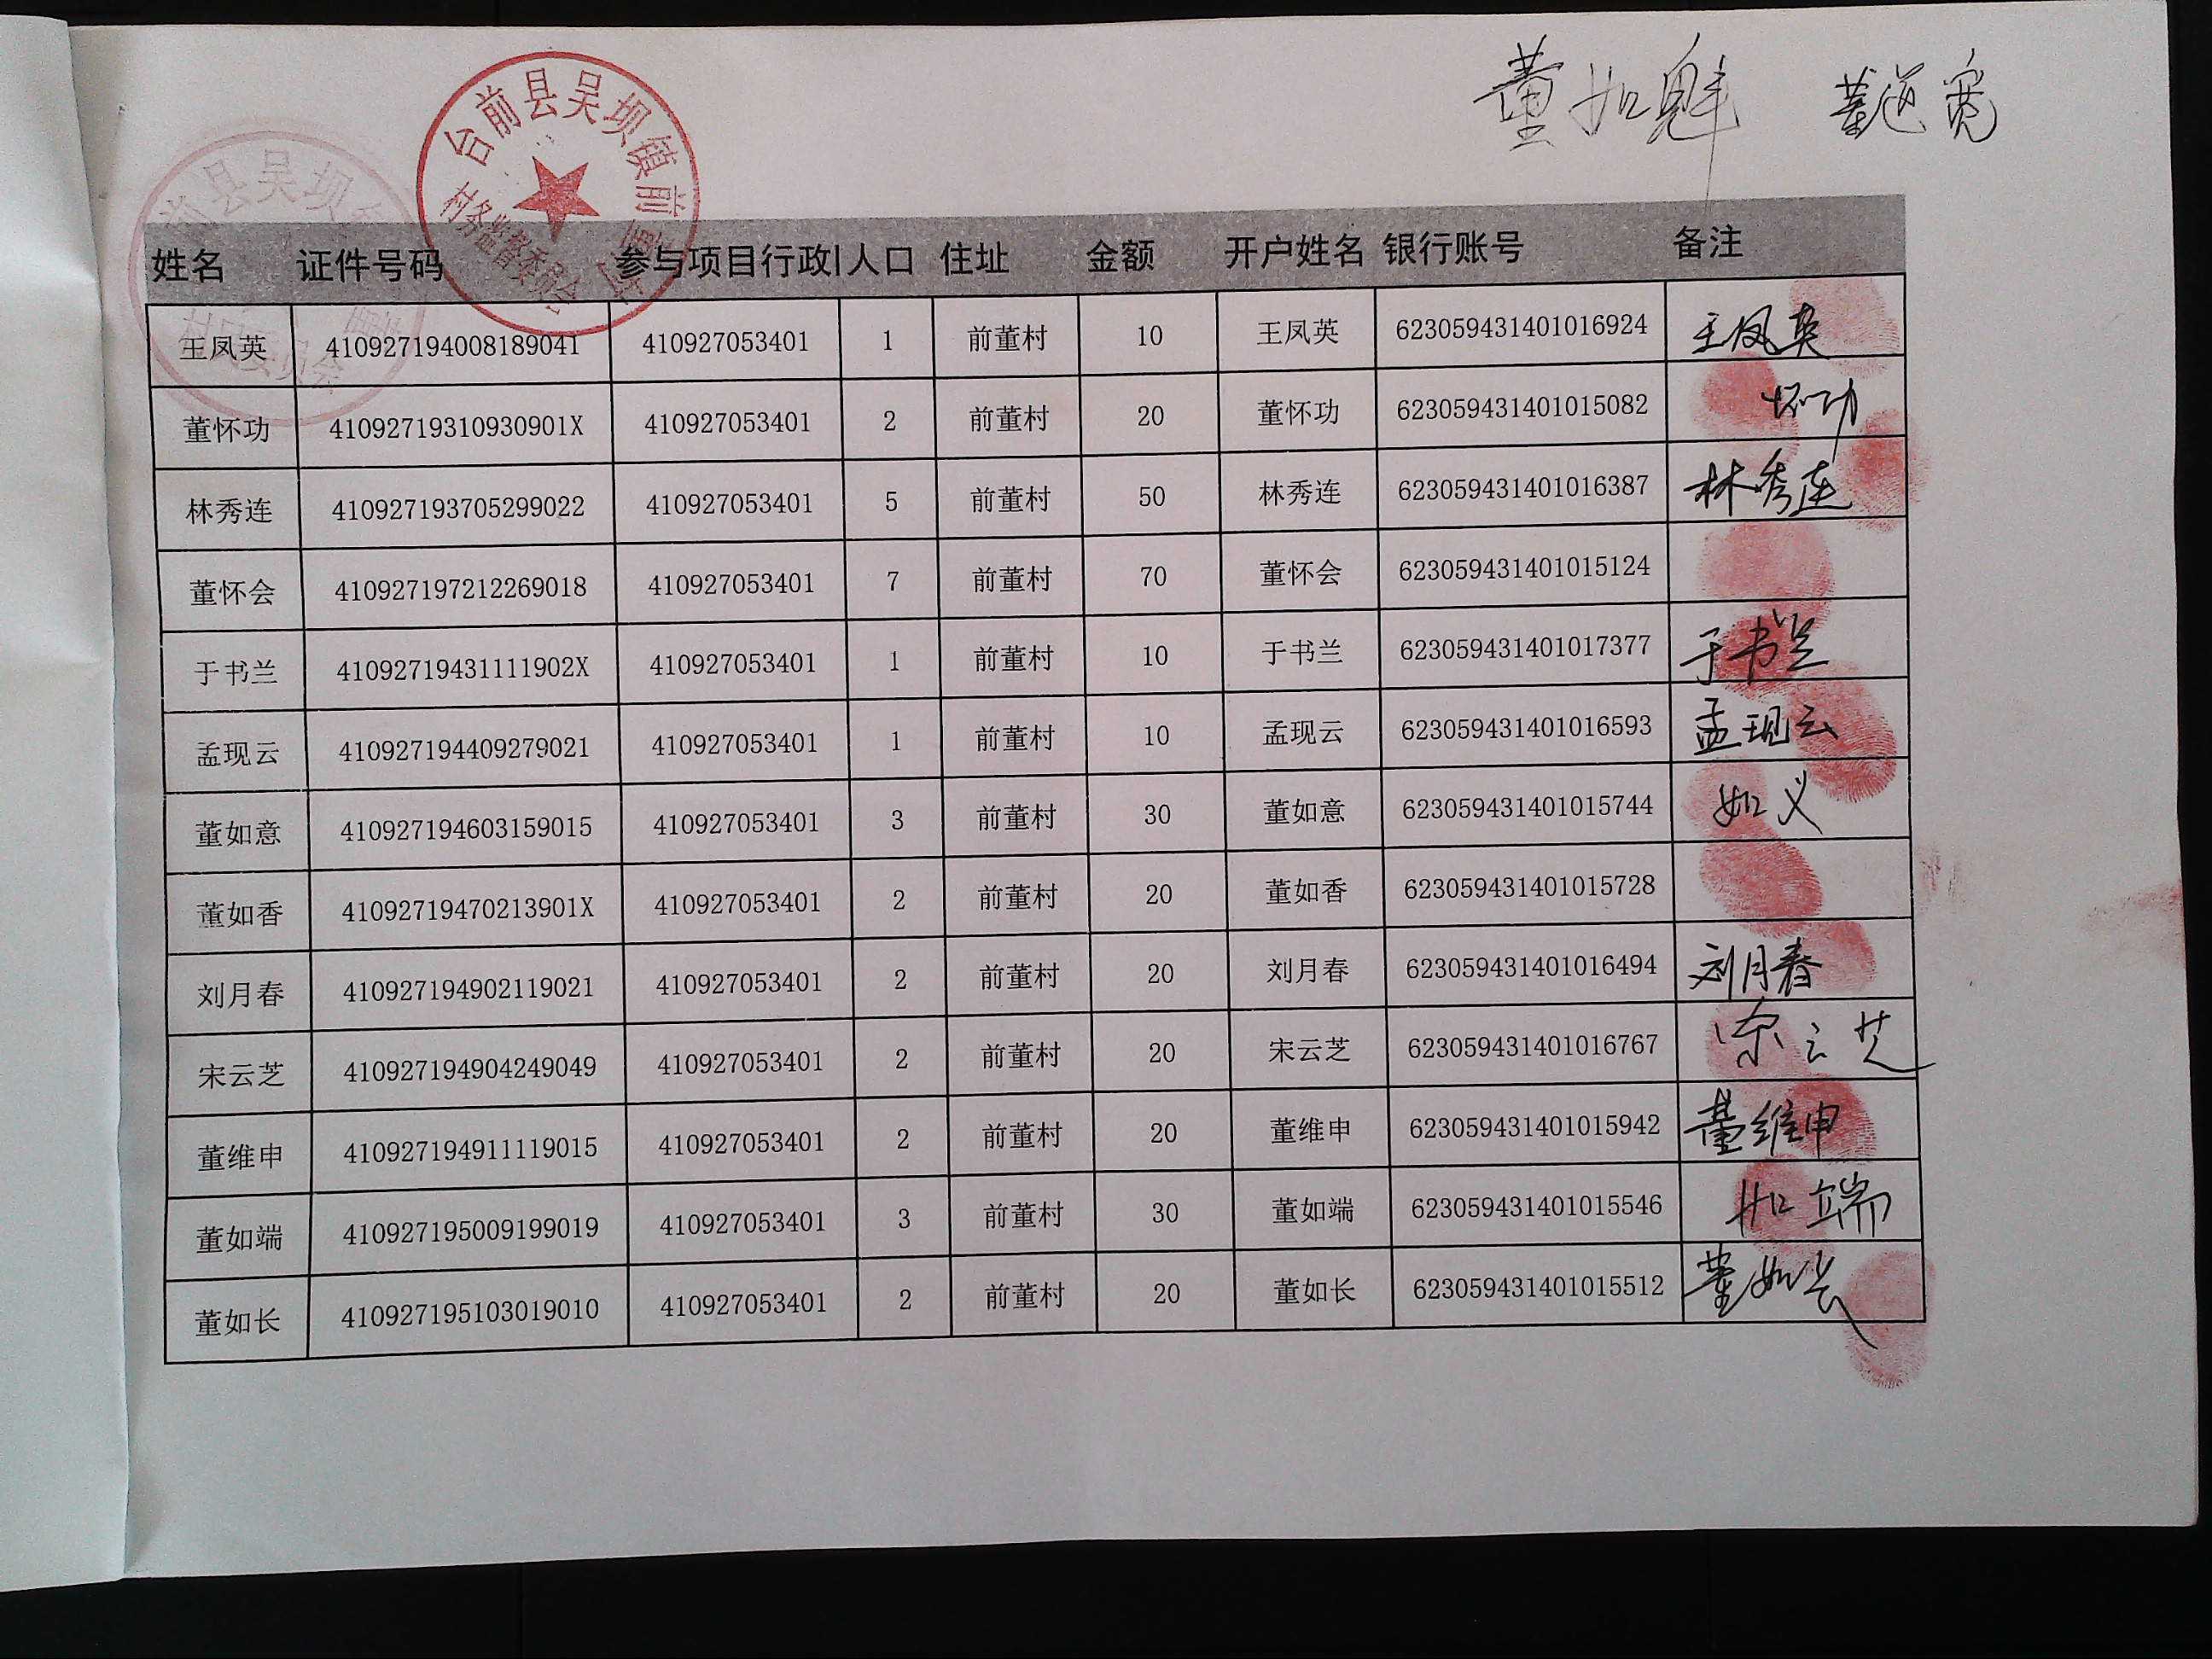 董如魁 董廷宽
台前县吴坝镇前董
村务监督委员会
前县吴坝
村民委员会
姓名 证件号码 参与项目行政 人口 住址 金额 开户姓名 银行账号 备注
王凤英 410927194008189041 410927053401 1 前董村 10 王凤英 623059431401016924 王凤英
董怀功 41092719310930901X 410927053401 2 前董村 20 董怀功 623059431401015082 怀功
林秀连 410927193705299022 410927053401 5 前董村 50 林秀连 623059431401016387 林秀连
董怀会 410927197212269018 410927053401 7 前董村 70 董怀会 623059431401015124
于书兰 41092719431111902X 410927053401 1 前董村 10 于书兰 623059431401017377 于书兰
孟现云 410927194409279021 410927053401 1 前董村 10 孟现云 623059431401016593 孟现云
董如意 410927194603159015 410927053401 3 前董村 30 董如意 623059431401015744 如义
董如香 41092719470213901X 410927053401 2 前董村 20 董如香 623059431401015728
刘月春 410927194902119021 410927053401 2 前董村 20 刘月春 623059431401016494 刘月春
宋云芝 410927194904249049 410927053401 2 前董村 20 宋云芝 623059431401016767 宋云芝
董维申 410927194911119015 410927053401 2 前董村 20 董维申 623059431401015942 董维申
董如端 410927195009199019 410927053401 3 前董村 30 董如端 623059431401015546 如端
董如长 410927195103019010 410927053401 2 前董村 20 董如长 623059431401015512 董如长